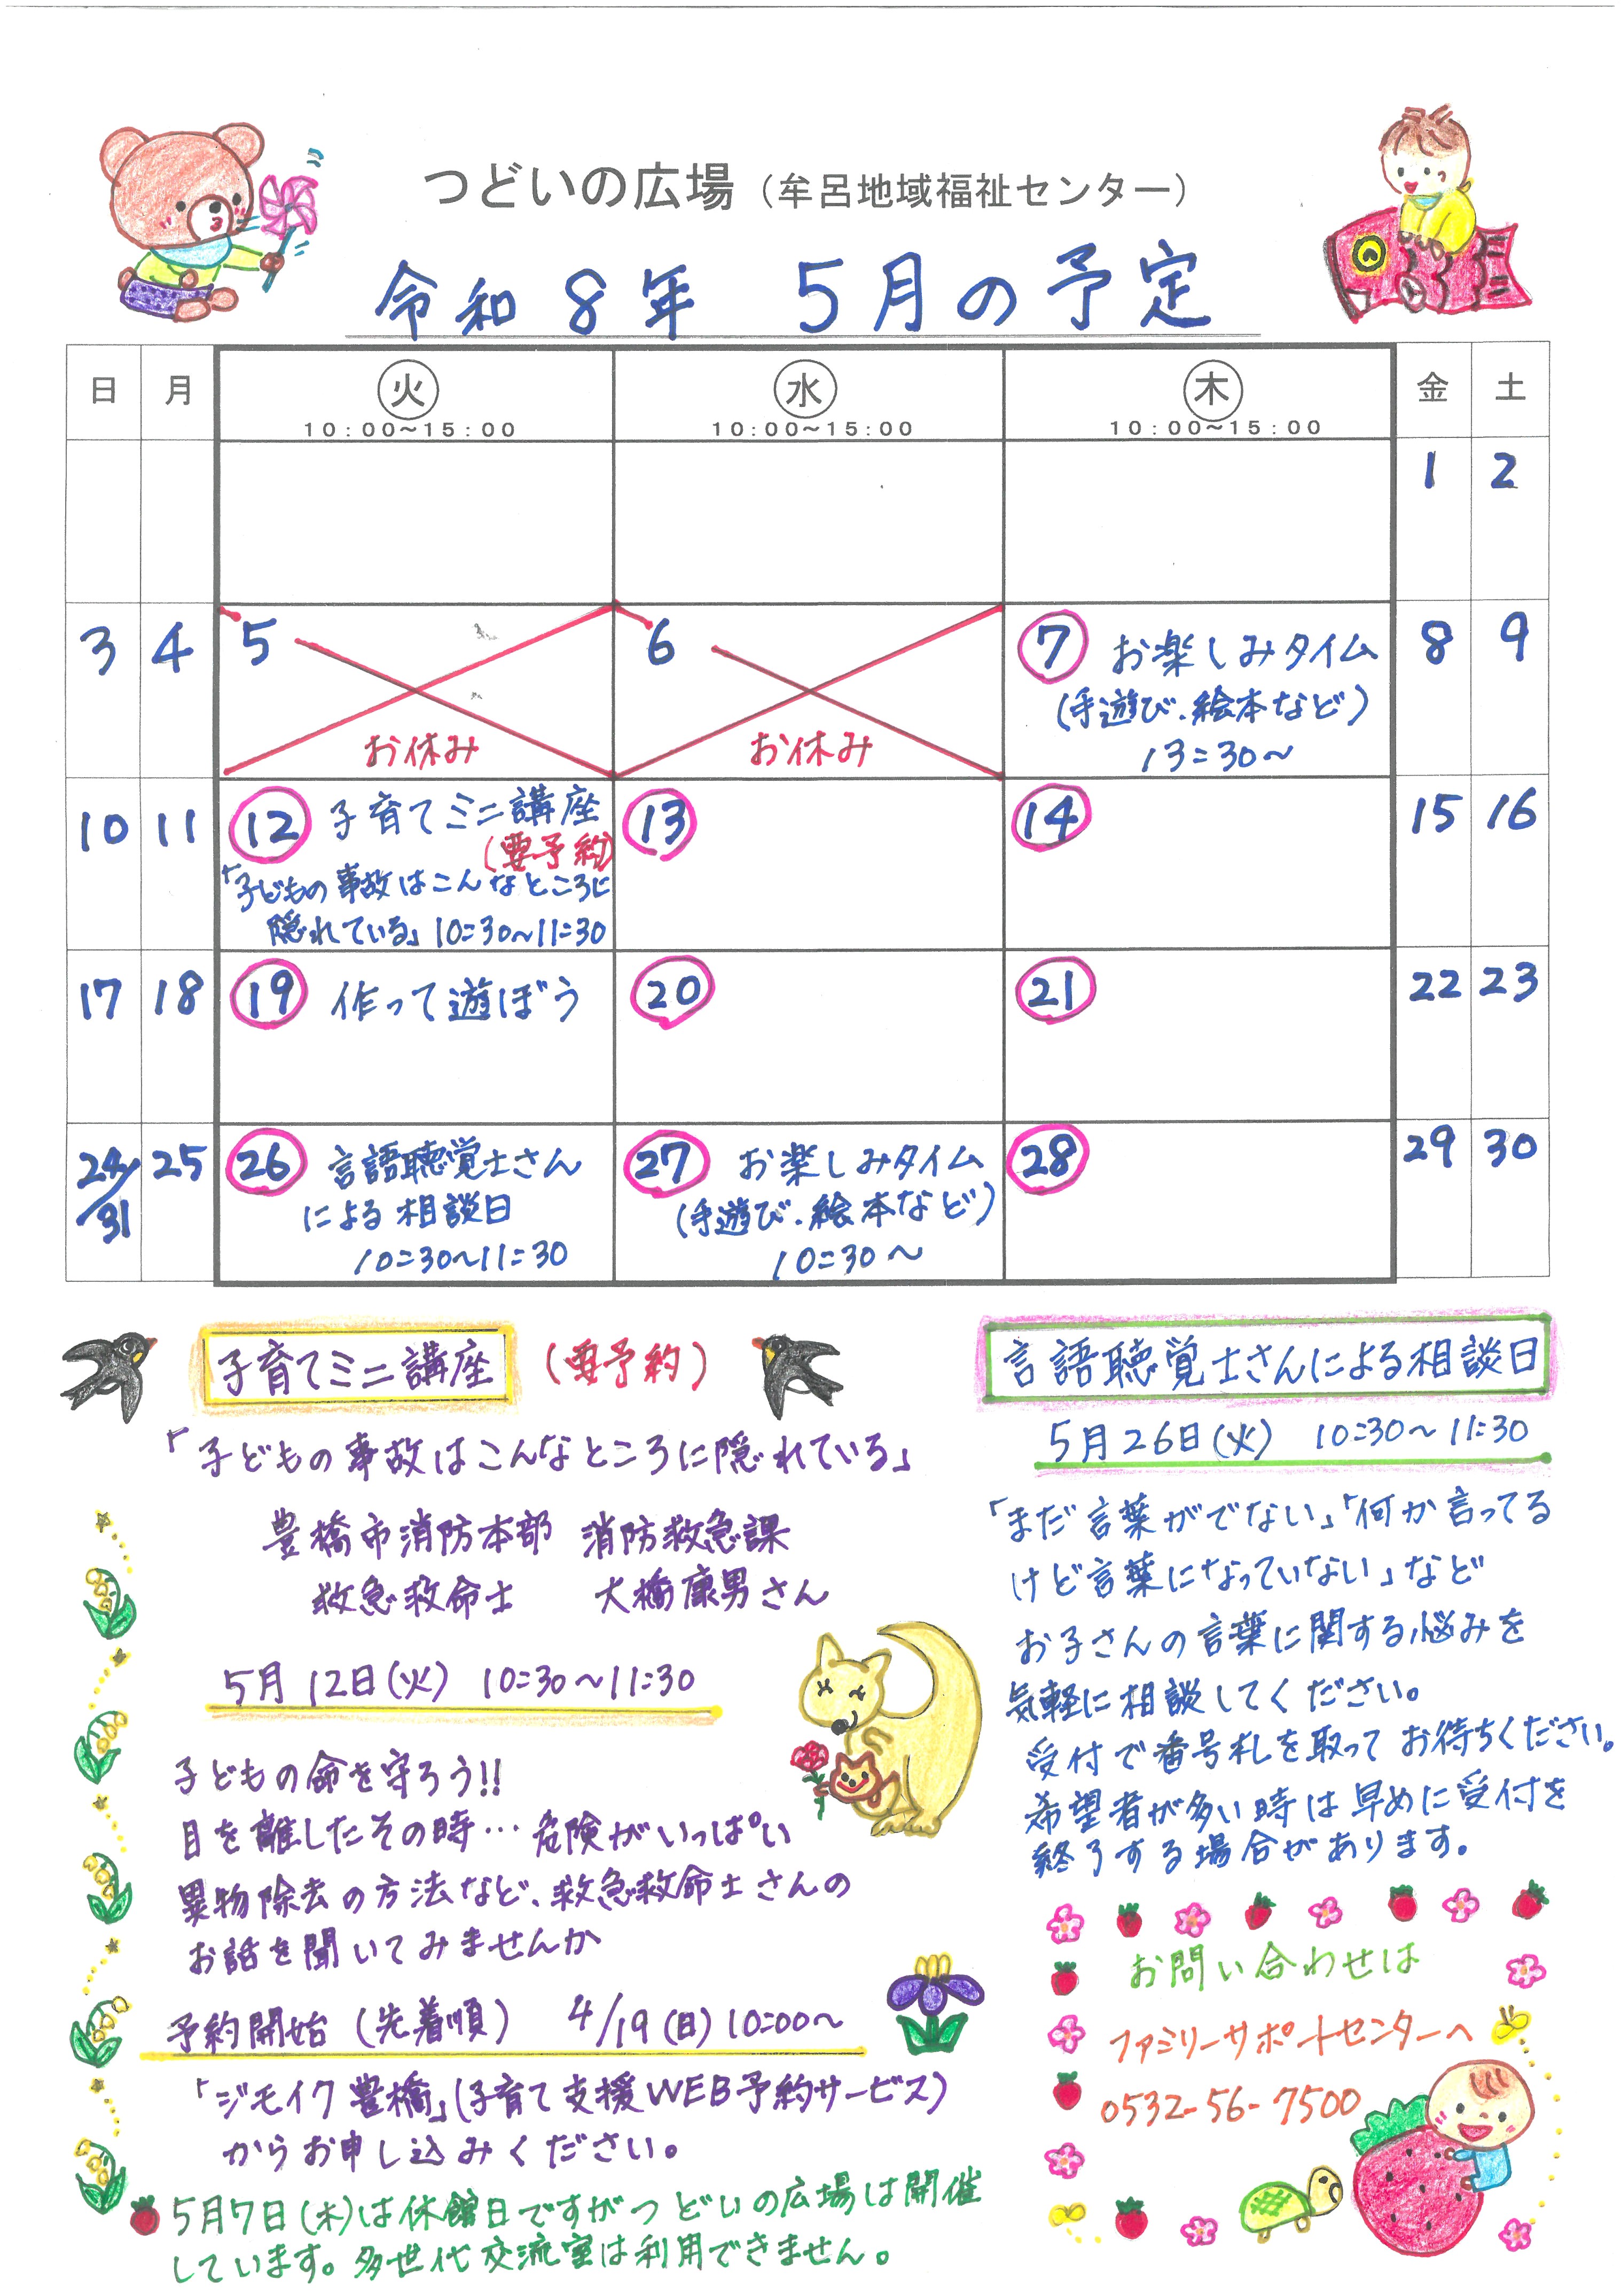 つどいの広場（牟呂地域福祉センター）
令和8年 5月の予定
日 月 火 水 木 金 土
10:00~15:00 10:00~15:00 10:00~15:00
1 2
3 4 5 6 7 お楽しみタイム 8 9
(手遊び、絵本など)
お休み お休み 13:30~
10 11 12 子育てミニ講座 13 14 15 16
(要予約)
「子どもの事故はこんなところに
隠れている」10:30~11:30
17 18 19 作って遊ぼう 20 21 22 23
24/31 25 26 言語聴覚士さん 27 お楽しみタイム 28 29 30
による相談日 (手遊び、絵本など)
10:30~11:30 10:30~
子育てミニ講座 (要予約)
「子どもの事故はこんなところに隠れている」
豊橋市消防本部 消防救急課
救急救命士 大橋康男さん
5月12日(火) 10:30~11:30
子どもの命を守ろう!!
目を離したその時… 危険がいっぱい
異物除去の方法など、救急救命士さんの
お話を聞いてみませんか
予約開始 (先着順) 4/19(日)10:00~
「ジモイク豊橋」(子育て支援WEB予約サービス)
からお申し込みください。
5月7日(木)は休館日ですがつどいの広場は開催
しています。多世代交流室は利用できません。
言語聴覚士さんによる相談日
5月26日(火) 10:30~11:30
「まだ言葉がでない」「何か言ってる
けど言葉になっていない」など
お子さんの言葉に関する悩みを
気軽に相談してください。
受付で番号札を取ってお待ちください。
希望者が多い時は早めに受付を
終了する場合があります。
お問い合わせは
ファミリーサポートセンターへ
0532-56-7500